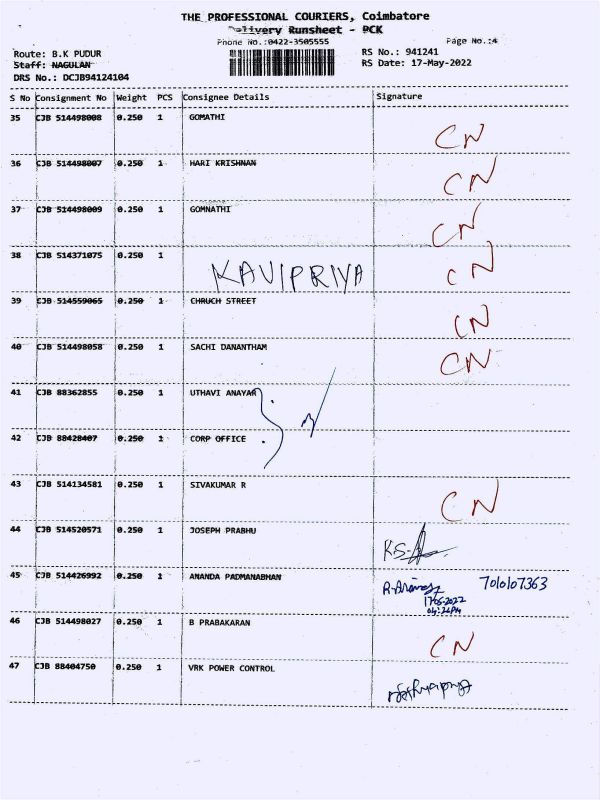 THE PROFESSIONAL COURIERS, Coimbatore
Delivery Runsheet - PCK
Phone No.:0422-3505555
Page No.:4
Route: B.K PUDUR
RS No.: 941241
Staff: NAGULAN
RS Date: 17-May-2022
DRS No.: DCJB94124104
S No Consignment No Weight PCS Consignee Details Signature
35 CJB 514498008 0.250 1 GOMATHI CN
36 CJB 514498007 0.250 1 HARI KRISHNAN CN
37 CJB 514498009 0.250 1 GOMNATHI CN
38 CJB 514371075 0.250 1 KAVIPRIYA CN
39 CJB 514559065 0.250 1 CHRUCH STREET CN
40 CJB 514498058 0.250 1 SACHI DANANTHAM CN
41 CJB 88362855 0.250 1 UTHAVI ANAYAR
42 CJB 88428407 0.250 1 CORP OFFICE
43 CJB 514134581 0.250 1 SIVAKUMAR R CN
44 CJB 514520571 0.250 1 JOSEPH PRABHU
45 CJB 514426992 0.250 1 ANANDA PADMANABHAN 7010107363
46 CJB 514498027 0.250 1 B PRABAKARAN CN
47 CJB 88404750 0.250 1 VRK POWER CONTROL